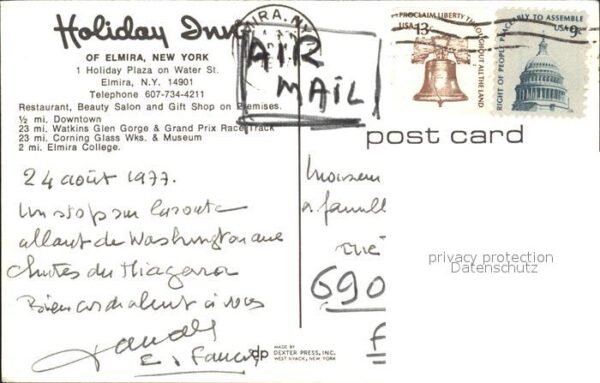 Holiday Inn
OF ELMIRA, NEW YORK
1 Holiday Plaza on Water St.
Elmira, N.Y. 14901
Telephone 607-734-4211
Restaurant, Beauty Salon and Gift Shop on Premises.
½ mi. Downtown
23 mi. Watkins Glen Gorge & Grand Prix Race Track
23 mi. Corning Glass Wks. & Museum
2 mi. Elmira College.
24 août 1977.
Un stop sur la route
allant de Washington aux
chutes du Niagara
Bien cordialement à vous
MADE BY
DEXTER PRESS, INC.
WEST NYACK, NEW YORK
dp
MIRA, N.Y.
AIR
MAIL
PROCLAIM LIBERTY THROUGHOUT ALL THE LAND
USA 13c
RIGHT OF PEOPLE PEACEABLY TO ASSEMBLE
USA 9c
post card
Monsieur
famille
690
F
privacy protection
Datenschutz